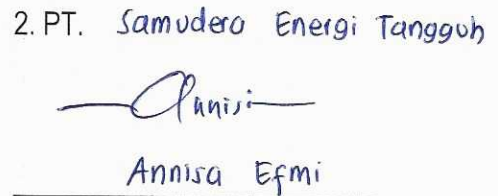 2. PT. Samudera Energi Tangguh
Annisa Efmi